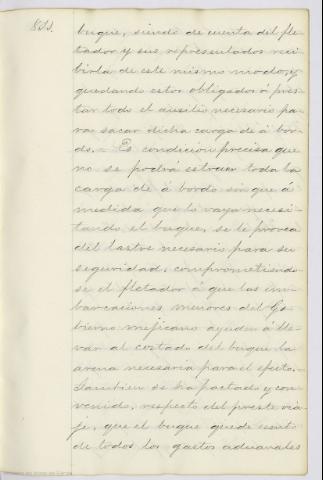 buque, siendo de cuenta del fle-
tador y sus representados reci-
birla de este mismo modo, y
quedando estos obligados á pres-
tar todo el ausilio necesario pa-
ra sacar dicha carga de á bor-
do. - Es condicion precisa que
no se podrá estraer toda la
carga de á bordo sin que á
medida que lo vaya necesi-
tando el buque, se le provea
del lastre necesario para su
seguridad, comprometiendo-
se el fletador á que las em-
barcaciones menores del Go-
bierno mejicano ayuden á lle-
var al costado del buque la
arena necesaria para el efecto. -
Tambien se ha pactado y con-
venido, respecto del preste via-
je, que el buque quede esento
de todos los gastos aduanales